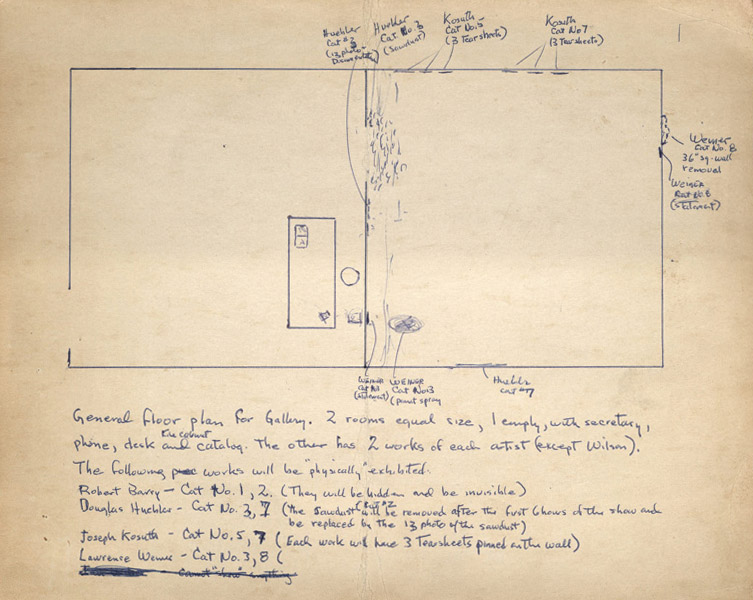 Huebler
Cat #2
(13 photo-
Documentation)
Huebler
Cat No. 2
(Sawdust)
Kosuth
Cat No. 5
(3 Tearsheets)
Kosuth
Cat No 7
(3 Tearsheets)
Weiner
Cat No. 8
36" sq. wall
removal
Weiner
Cat No. 8
(statement)
Weiner
Cat No
(statement)
Weiner
Cat No 3
(paint spray
Huebler
cat #7
General floor plan for Gallery. 2 rooms equal size, 1 empty, with secretary,
phone, desk and the cournt catalog. The other has 2 works of each artist (except Wilson).
The following works will be "physically" exhibited.
Robert Barry - Cat No. 1, 2. (They will be hidden and be invisible)
Douglas Huebler - Cat No. 3, 7 (the sawdust Cat #2 will be removed after the first 6 hours of the show and
be replaced by the 13 photo of the sawdust)
Joseph Kosuth - Cat No. 5, 7 (Each work will have 3 Tearsheets pinned on the wall)
Lawrence Weiner - Cat No. 3, 8 (
Cannot "show" anything